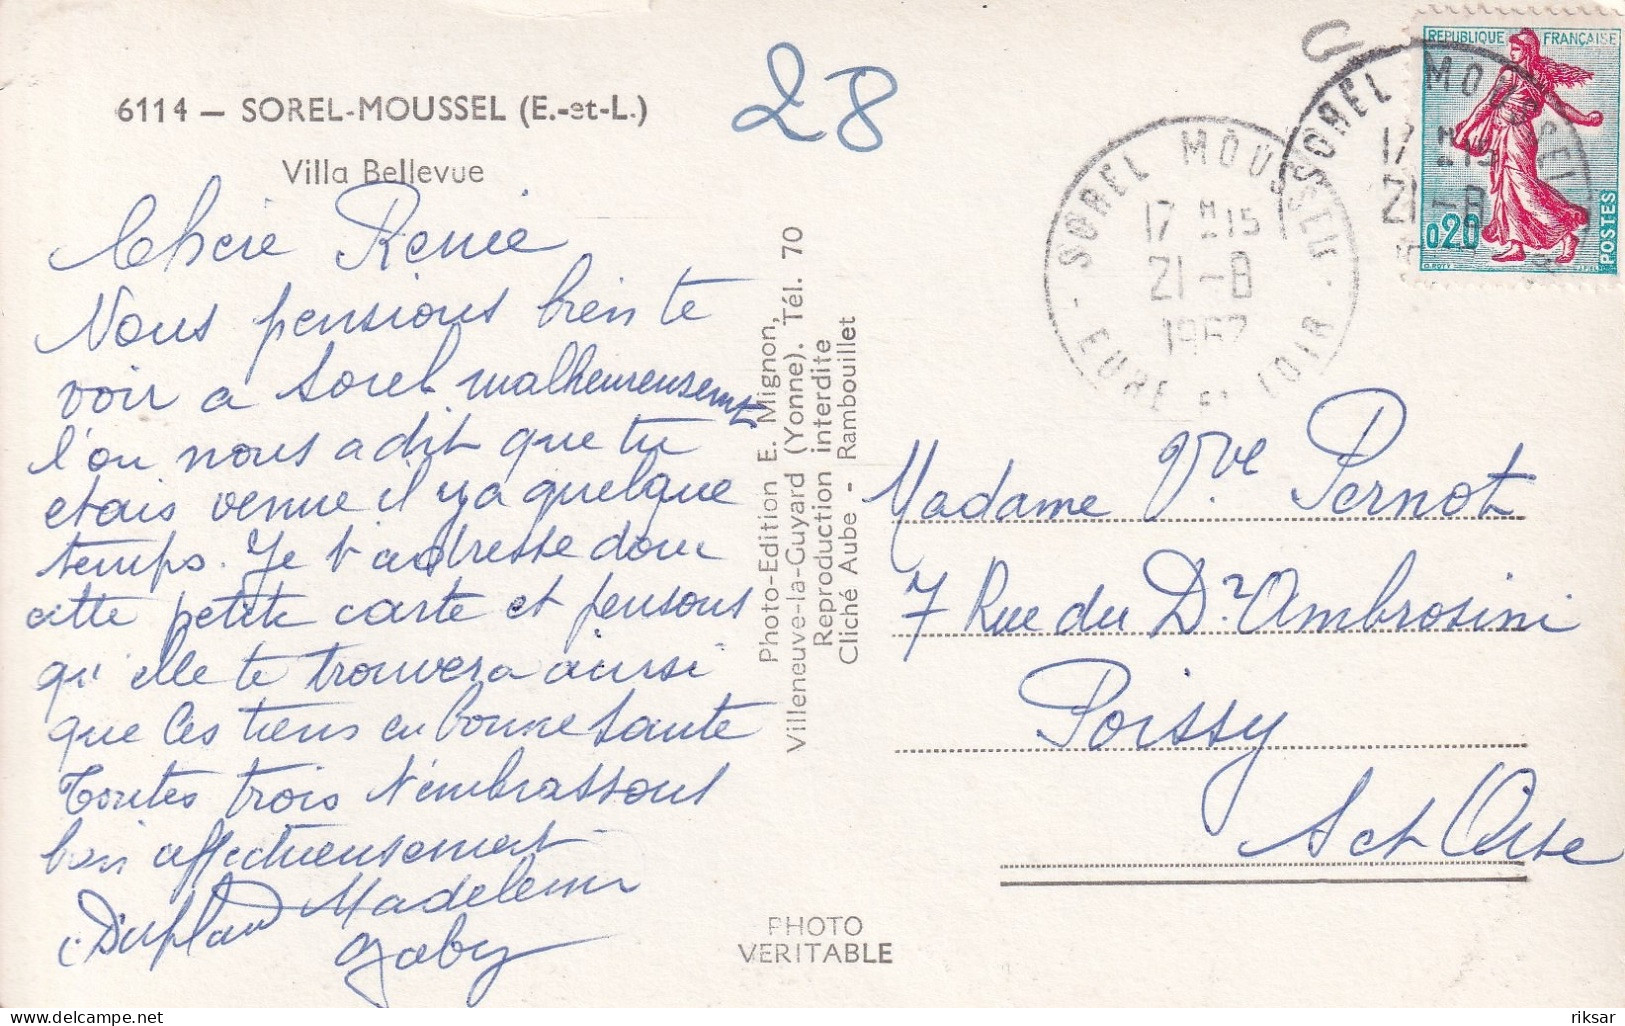 6114 — SOREL-MOUSSEL (E.-et-L.)
Villa Bellevue
28
Chere Renée
Nous pensions bien te
voir a Sorel malheureusement
l'on nous a dit que tu
etais venue il y a quelque
temps. Je t'adresse donc
cette petite carte et pensons
qu'elle te trouvera ainsi
que les tiens en bonne sante
Toutes trois t'embrassons
bien affectueusement
Madeleine
Gaby
Photo-Edition E. Mignon,
Villeneuve-la-Guyard (Yonne). Tél. 70
Reproduction interdite
Cliché Aube - Rambouillet
PHOTO
VERITABLE
SOREL MOUSSEL
17 H 15
21-8
1967
EURE ET LOIR
SOREL MOUSSEL
17 H 15
21-8
REPUBLIQUE FRANÇAISE
0,20
POSTES
Madame Vve Pernot
7 Rue du Dr Ambrosini
Poissy
S et Oise
delcampe.net
riksar